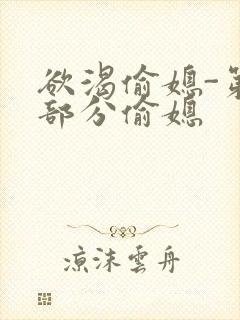 欲渴偷媳-第
部分偷媳
凉沫雲舟